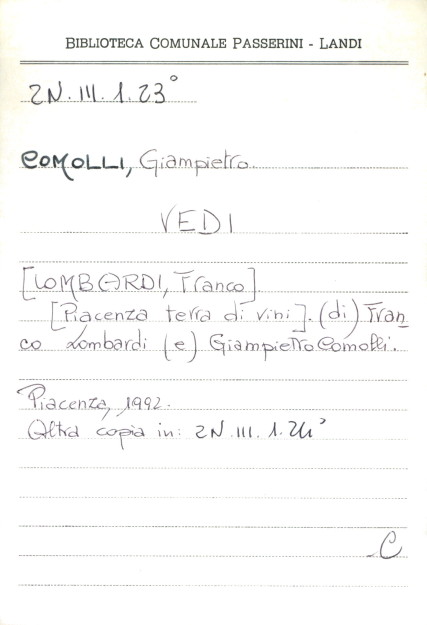 BIBLIOTECA COMUNALE PASSERINI - LANDI
2N.III.1.23°
COMOLLI, Giampietro.
VEDI
[LOMBARDI, Franco].
[Piacenza terra di vini]. (di) Fran
co Lombardi (e) Giampietro Comolli.
Piacenza, 1992.
Altra copia in: 2N.III.1.24°
C